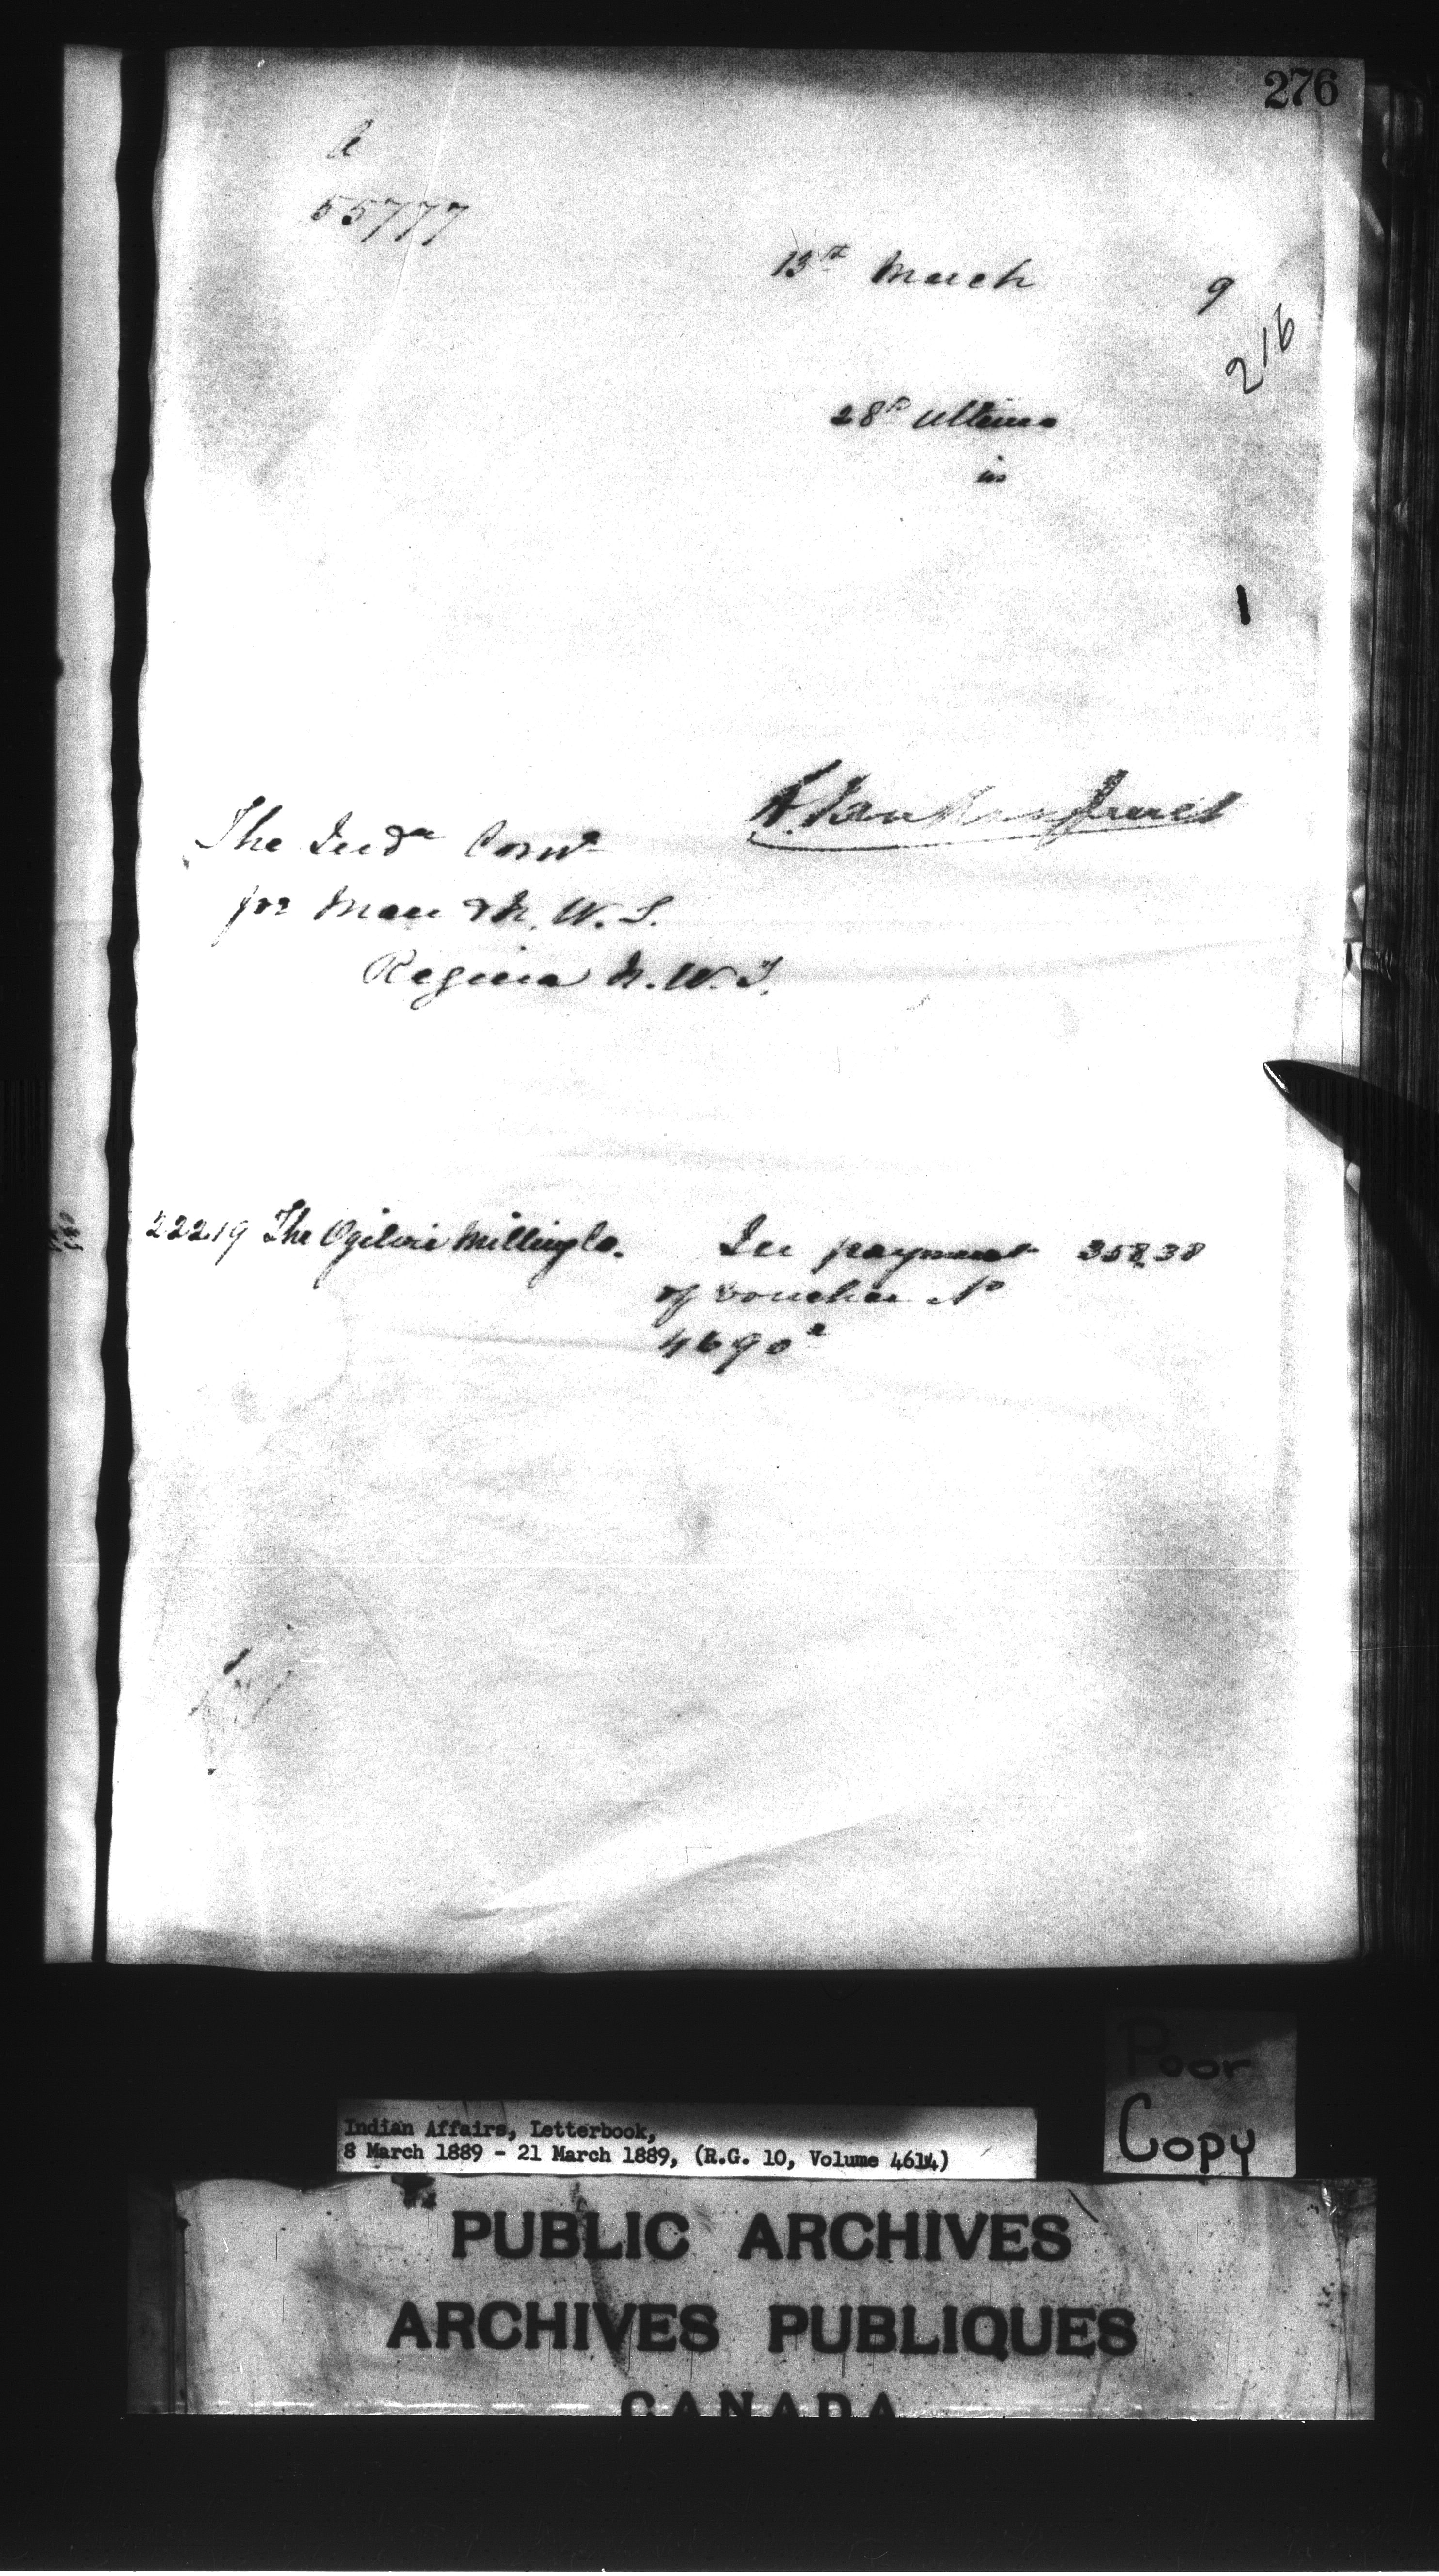 276
55777
13th March 9
216
28th Ultimo
in
1
The Indn Comr
for Man & N. W. T.
Regina N. W. T.
22219 The Ogilvie Milling Co. In payment 358.38
of voucher No
4690a
Poor
Copy
Indian Affairs, Letterbook,
8 March 1889 - 21 March 1889, (R.G. 10, Volume 4614)
PUBLIC ARCHIVES
ARCHIVES PUBLIQUES
CANADA